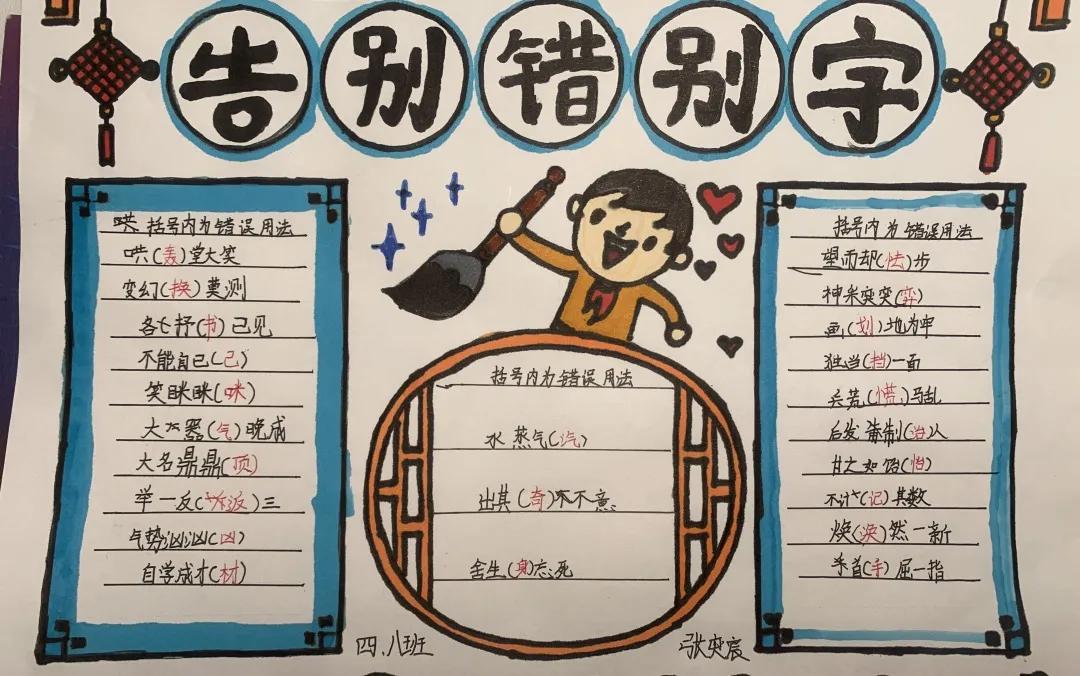 告别错别字
哄 括号内为错误用法
哄(轰)堂大笑
变幻(换)莫测
各七抒(书)己见
不能自已(己)
笑眯眯(咪)
大器(气)晚成
大名鼎鼎(顶)
举一反(返)三
气势汹汹(凶)
自学成才(材)
括号内为错误用法
水蒸气(汽)
出其(奇)不意
舍生(身)忘死
括号内为错误用法
望而却(怯)步
神采奕奕(弈)
画(划)地为牢
独当(挡)一面
兵荒(慌)马乱
后发制(治)人
甘之如饴(怡)
不计(记)其数
焕(涣)然一新
首(手)屈一指
四.八班